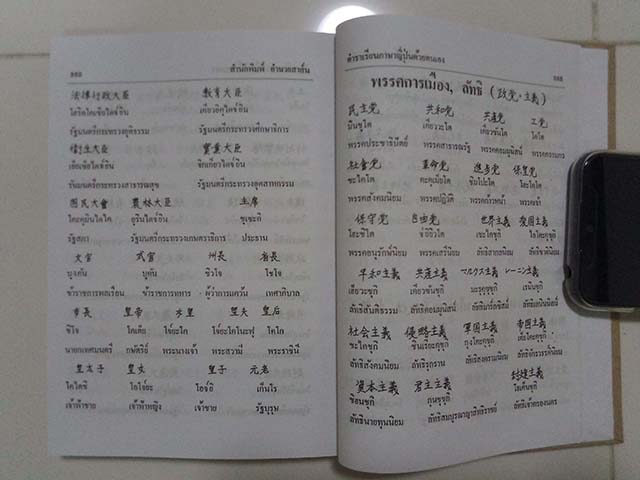 สำนักพิมพ์ อำนวยสาส์น
法律行政大臣 教育大臣
รัฐมนตรีกระทรวงยุติธรรม รัฐมนตรีกระทรวงศึกษาธิการ
衛生大臣 実業大臣
รัฐมนตรีกระทรวงสาธารณสุข รัฐมนตรีกระทรวงอุตสาหกรรม
國民大會 農林大臣 主席
รัฐสภา รัฐมนตรีกระทรวงเกษตราธิการ ประธาน
文官 武官 州長 省長
บุงคัน บุคัน ชิวโจ โชโจ
ข้าราชการพลเรือน ข้าราชการทหาร ผู้ว่าการมณฑล เทศาภิบาล
市長 皇帝 皇夫 皇后
ชิโจ โคเต้ย โคโก
นายกเทศมนตรี กษัตริย์ พระนางเจ้า พระสวามี พระราชินี
皇太子 皇女 皇子 元老
โคไตชิ โอโจ้ะ โอจิ เก็นโร
เจ้าฟ้าชาย เจ้าฟ้าหญิง เจ้าชาย รัฐบุรุษ
ตำราเรียนภาษาญี่ปุ่นด้วยตนเอง
พรรคการเมือง, ลัทธิ (政党・主義)
民主党 共和党 共產党 工党
มินชูโต เคียววะโต เคียวซันโต โคโต
พรรคประชาธิปัตย์ พรรคสาธารณรัฐ พรรคคอมมูนิสต์ พรรคกรรมกร
社會党 革命党 進步党 保皇党
ชะไคโต คะคุเม้ยโต ชิมโปะโต โฮะโคโต
พรรคสังคมนิยม พรรคปฏิวัติ พรรคก้าวหน้า พรรคเจ้า
保守党 自由党 世界主義 復國主義
โฮะชิวโต จิยิวโต
พรรคอนุรักษ์นิยม พรรคเสรีนิยม ลัทธิสากลนิยม ลัทธิชาตินิยม
平和主義 共產主義 マルクス主義 レーニン主義
ลัทธิสันติธรรม ลัทธิคอมมูนิสต์
社会主義 侵略主義 軍國主義 帝國主義
ลัทธิสังคมนิยม ลัทธิรุกราน ลัทธิสงครามนิยม ลัทธิจักรวรรดินิยม
資本主義 君主主義 封建主義
ลัทธินายทุนนิยม ลัทธิสมบูรณาญาสิทธิราชย์ ลัทธิเจ้าครองนคร